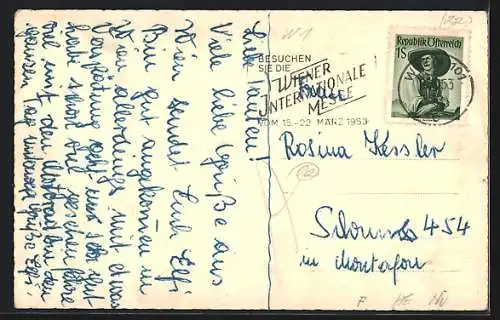 Liebe Tanten!
Viele liebe Grüße aus
Wien sendet Euch Elfi
Bin gut angekommen in
Wien allerdings mit etwas
Verspätung geht mir sehr gut
habe schon viel gesehen fahre
viel mit den Autorad bin den
ganzen Tag unterwegs Grüße Elfi
W1
(22)
BESUCHEN
SIE DIE
WIENER
INTERNATIONALE
MESSE
VOM 15.-22. MÄRZ 1953
Republik Österreich
1S
101
53
Rosina Kessler
Schruns 454
in Montafon
F HE